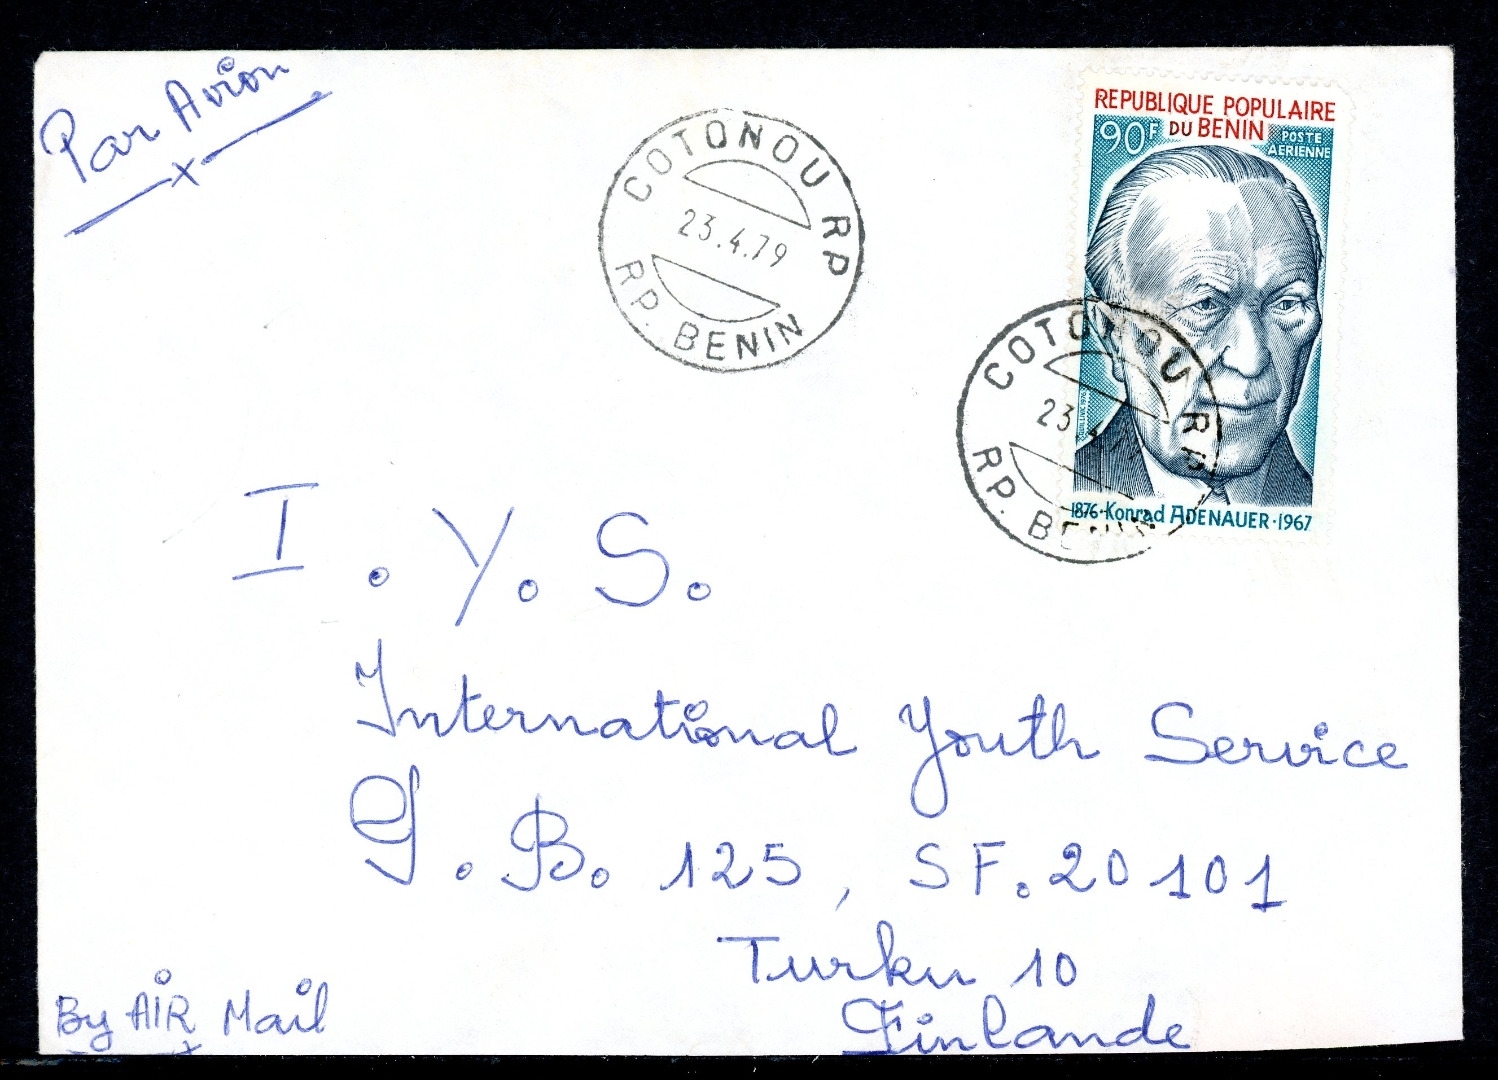 Par Avion
REPUBLIQUE POPULAIRE
DU BENIN
90F
POSTE
AERIENNE
COTONOU RP
23.4.79
RP. BENIN
COTONOU RP
23.4.79
RP. BENIN
1876·Konrad ADENAUER·1967
I.Y.S.
International Youth Service
P.B. 125, SF.20101
Turku 10
Finlande
By AIR Mail